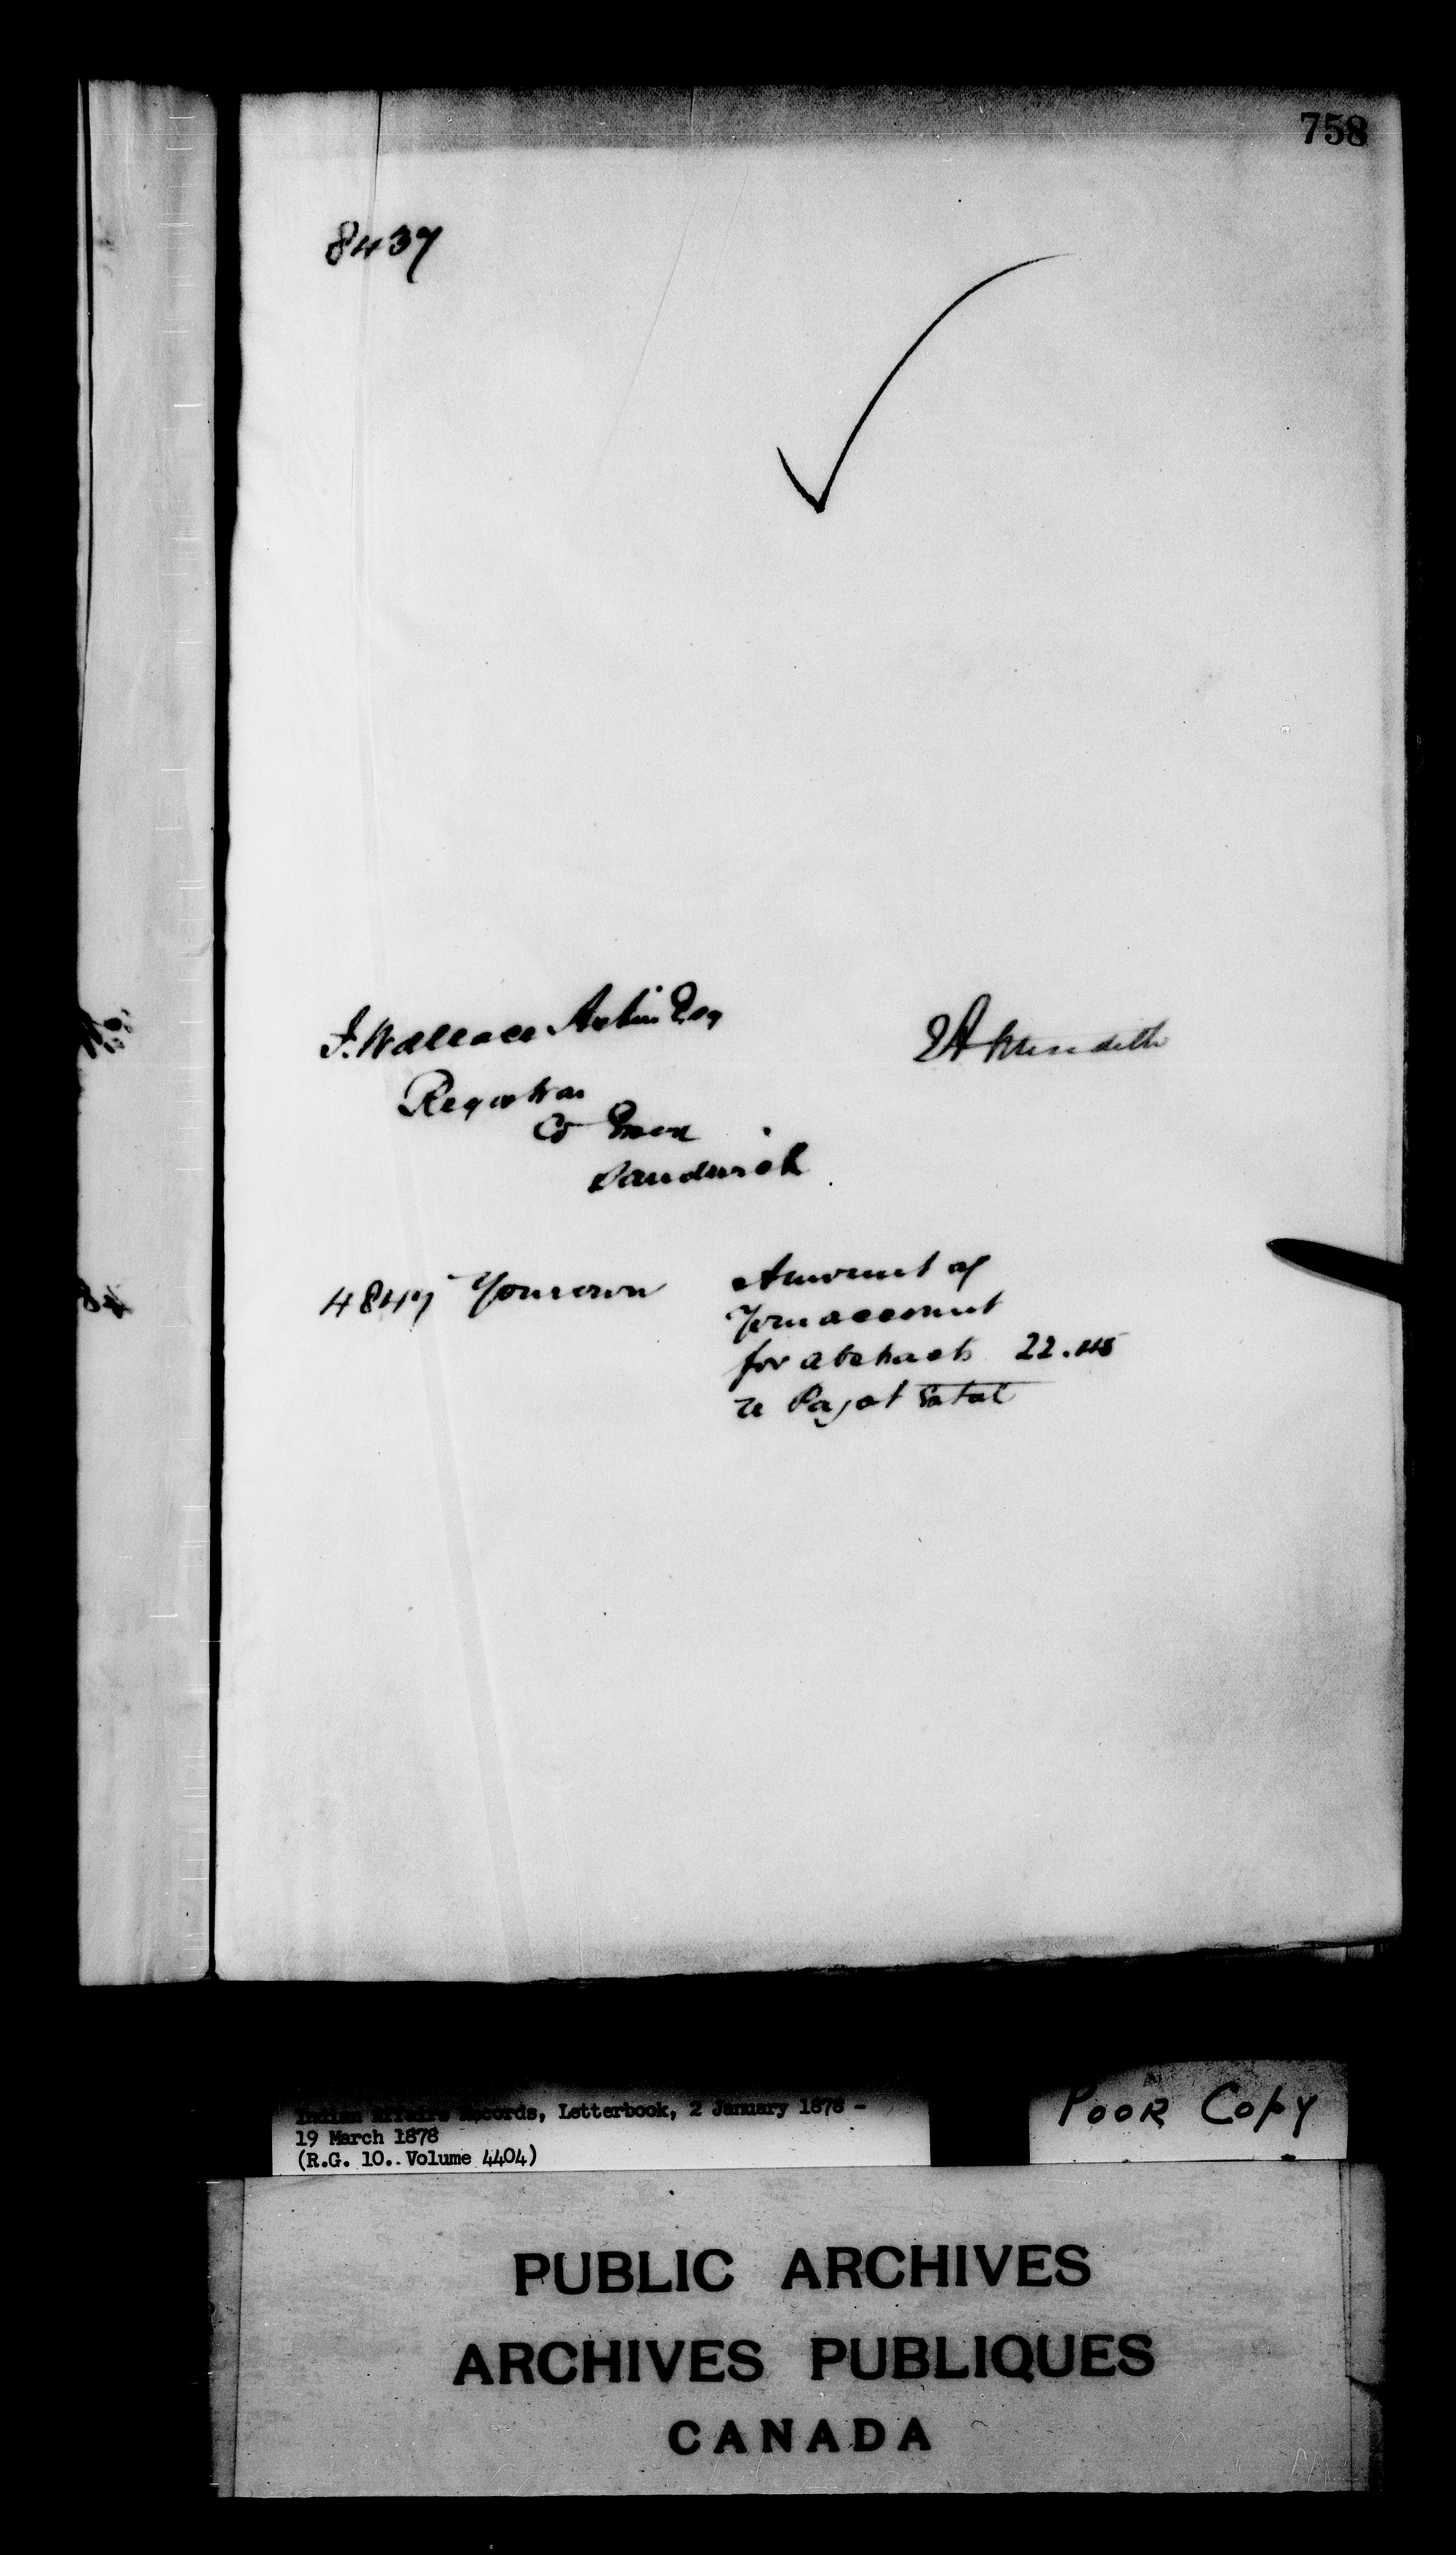 758
8437
J. Wallace Askin Esq
EA Meredith
Registrar
Co Essex
Sandwich
4847 Your own Amount of
your account
for abstracts 22.45
re Pajot Estate
Indian Affairs Records, Letterbook, 2 January 1878 -
19 March 1878
(R.G. 10.. Volume 4404)
POOR COPY
PUBLIC ARCHIVES
ARCHIVES PUBLIQUES
CANADA